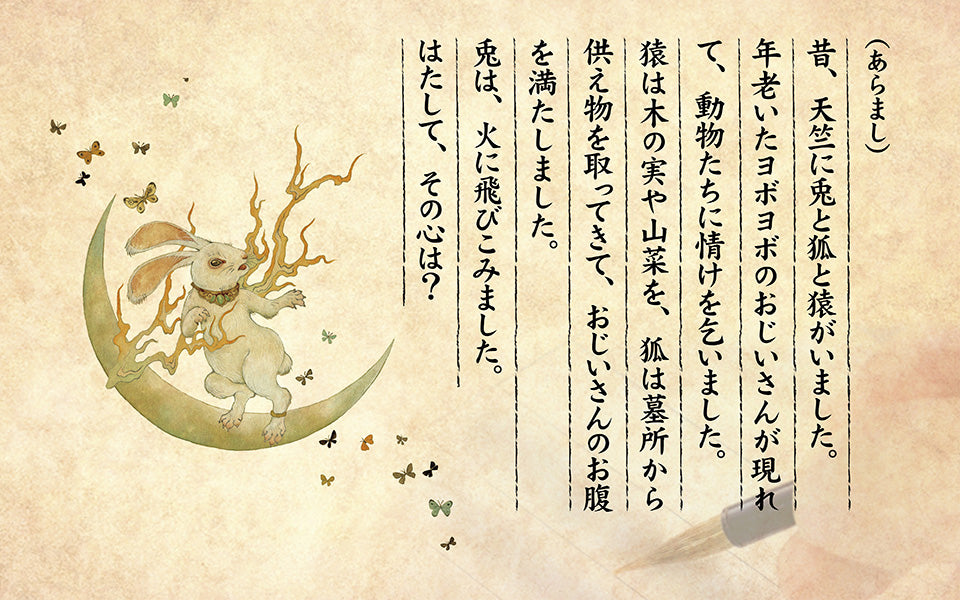 （あらまし）
昔、天竺に兎と狐と猿がいました。
年老いたヨボヨボのおじいさんが現れ
て、動物たちに情けを乞いました。
猿は木の実や山菜を、狐は墓所から
供え物を取ってきて、おじいさんのお腹
を満たしました。
兎は、火に飛びこみました。
はたして、その心は？